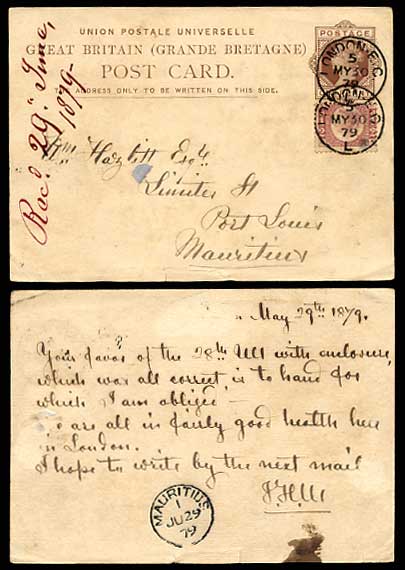 UNION POSTALE UNIVERSELLE
GREAT BRITAIN (GRANDE BRETAGNE)
POST CARD.
THE ADDRESS ONLY TO BE WRITTEN ON THIS SIDE.
POSTAGE
LONDON E.C
5
MY 30
79
LONDON E.C
5
MY 30
79
L
Recd. 29th June,
1879-
Wm Hazlitt Esqr.
St
Port Louis
Mauritius
May 29th 1879.
Your favor of the 28th Ult with enclosure,
which was all correct is to hand for
which I am obliged
are all in fairly good health here
in London.
I hope to write by the next mail
MAURITIUS
1
JU 29
79